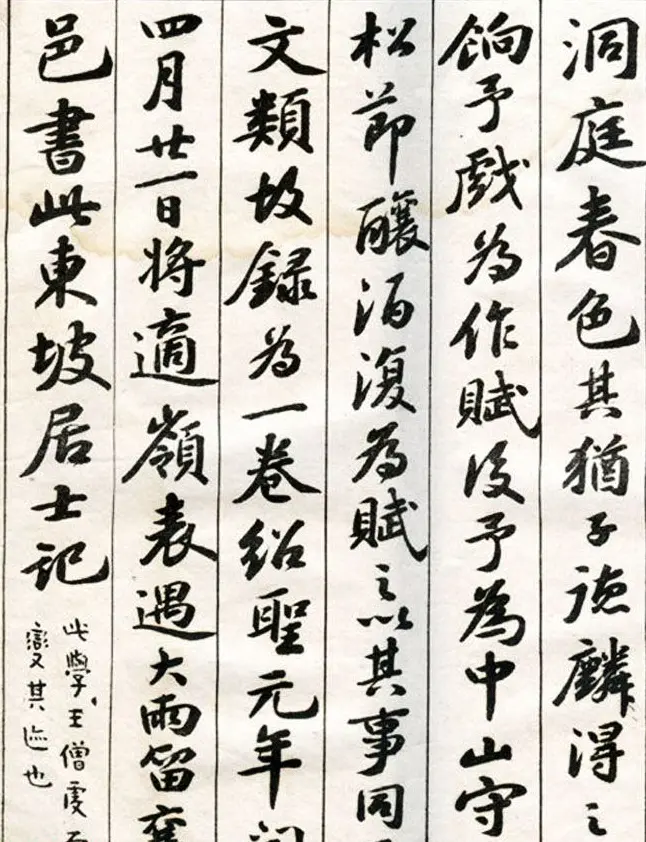 洞庭春色其猶子德麟得之
餉予戲為作賦後予為中山守
松節釀酒復為賦之以其事同
文類故錄為一卷紹聖元年閏
四月廿一日將適嶺表遇大雨留襄
邑書此東坡居士記
此學王僧虔而
變其迹也